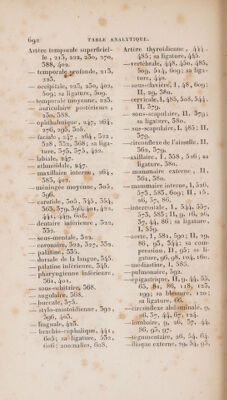 692 TABLE ANALYTIQUE.
Artère temporale superficiel-
le, 215, 222, 250, 270,
388, 402.
— temporale profonde, 215,
225.
— occipitale, 225, 250, 402,
509; sa ligature, 509.
— temporale moyenne, 225.
— auriculaire postérieure,
250, 388.
— ophthalmique, 247, 264,
276, 296, 305.
— faciale, 247, 264, 322,
328, 352, 368; sa liga-
ture, 375, 575, 422.
— labiale, 247.
— ethmoïdale, 247.
— maxillaire interne, 264,
385, 402.
— méningée moyenne, 305,
396.
— carotide, 305, 345, 354,
365, 379, 396, 401, 422,
441, 449, 608.
— dentaire inférieure, 322,
352.
— sous-mentale, 322.
— coronaire, 322, 327, 332.
— palatine, 335.
— dorsale de la langue, 345.
— palatine inférieure, 345.
— pharyngienne inférieure,
362, 401.
— sous-orbitaire, 368.
— angulaire, 368.
— buccale, 375.
— stylo-mastoïdienne, 392,
396, 403.
— linguale, 425.
— brachio-céphalique, 441,
605; sa ligature, 532,
606; anomalies, 608.
Artère thyroïdienne, 444,
485; sa ligature, 445.
— vertébrale, 448, 450, 485,
509, 514, 609; sa liga-
ture, 449.
— sous-clavière, I, 48, 609;
II, 29, 380.
— cervicale, I, 485, 508, 544.
II, 379.
— sous-scapulaire, II, 379;
sa ligature, 380.
— sus-scapulaire, I, 485; II,
379.
— circonflexe de l'aisselle, II,
362, 379.
— axillaire, I, 538, 526; sa
ligature, 380.
— mammaire externe, II,
561, 380.
— mammaire interne, I, 526,
573, 585, 609; II, 15,
26, 37, 86.
— intercostale, I, 544, 557,
573, 585; II, 9, 26, 29,
37, 44, 86; sa ligature,
I, 559.
— aorte, I, 581, 590; II, 29,
86, 95, 544; sa com-
pression, II, 95; sa li-
gature, 96, 98, 104, 160.
— médiastine, I, 585.
— pulmonaire, 592.
— épigastrique, II, 9, 44, 55,
65, 81, 86, 118, 125,
199; sa blessure, 120;
sa ligature, 66.
— circonflexe abdominale, 9,
26, 37, 44, 67, 124.
— lombaire, 9, 26, 37, 44,
86, 95, 97.
— tégumentaire, 26, 54, 64.
— iliaque externe, 29, 54, 95,